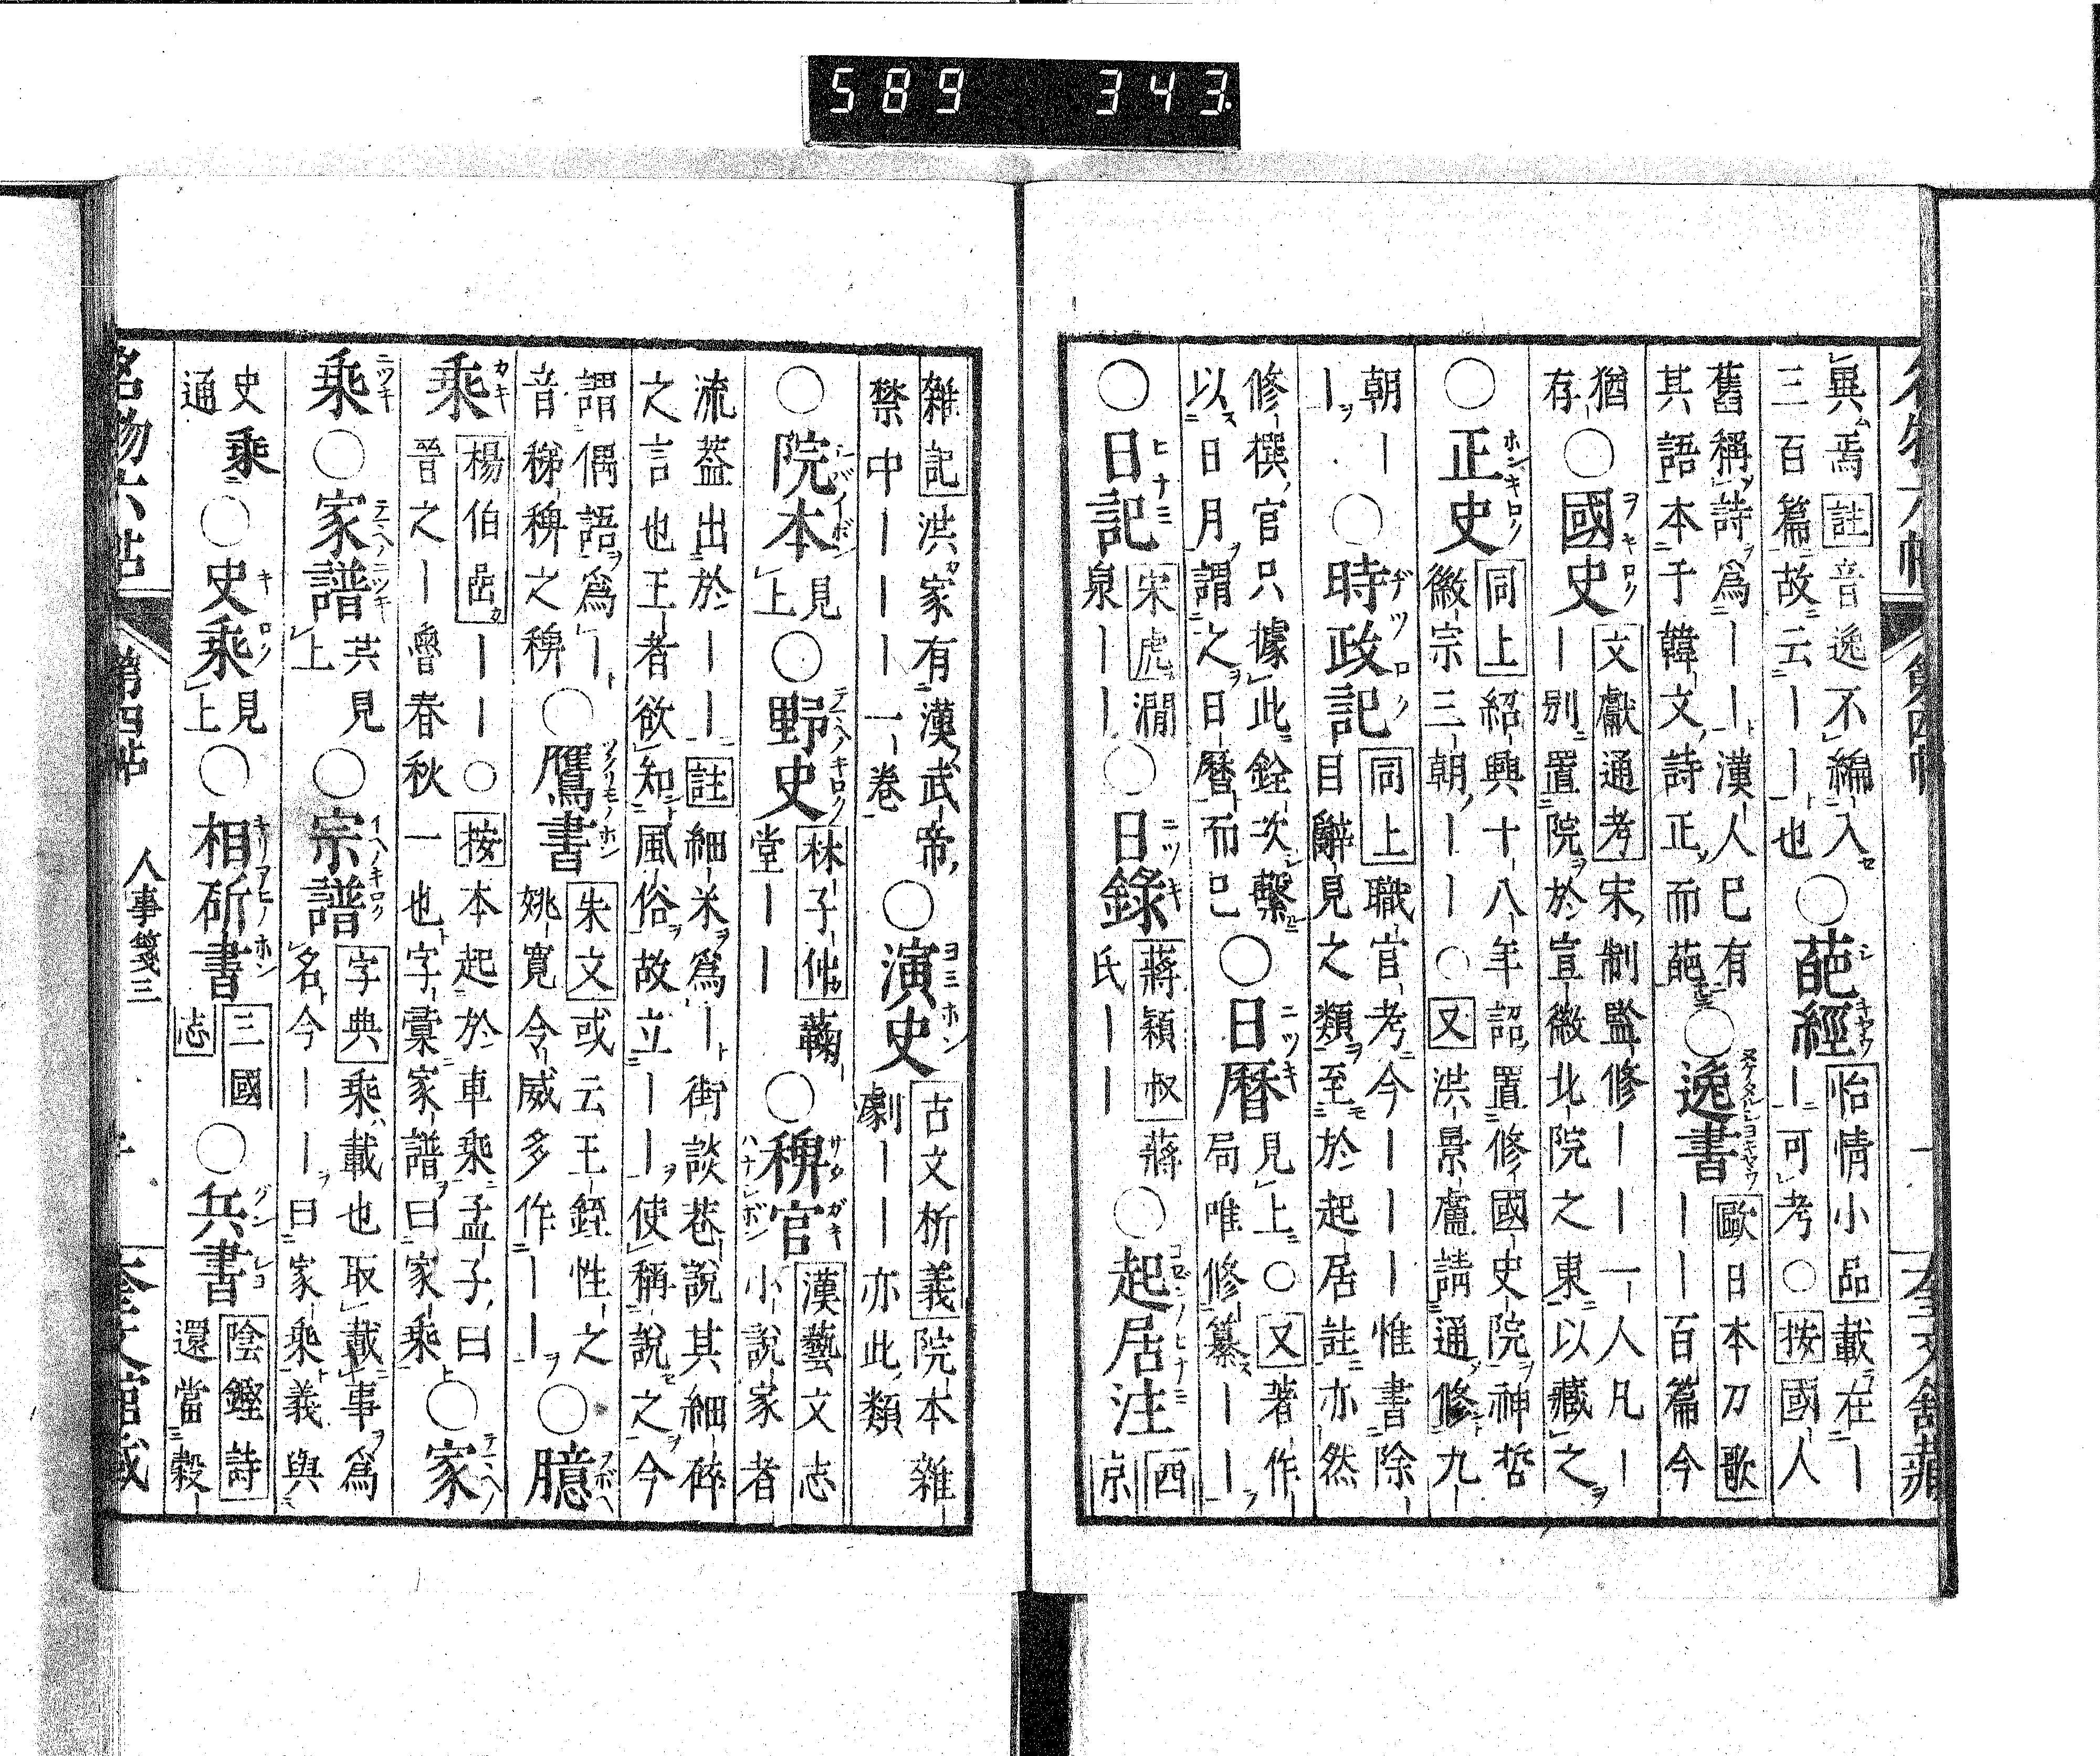 589 343
異焉註音逸不編入○葩經怡情小品載在｜
三百篇故云｜｜也｜可考○按國人
舊稱詩爲｜｜漢人巳有○逸書歐日本刀歌
其語本于韓文詩正而葩｜｜百篇今
猶○國史文獻通考宋制監修｜｜一人凡｜
存｜別置院於宣徽北院之東以藏之
○正史同上紹興十八年詔置修國史院神哲
徽宗三朝｜｜○又洪景盧請通修九
朝｜○時政記同上職官考今｜｜｜惟書除
｜目辭見之類至於起居註亦然
修撰官只據此銓次繫○日曆見上○又著作
以日月謂之日曆而巳局唯修纂｜｜
○日記宋虎澗○日錄蔣穎叔蔣○起居注西
泉｜｜氏｜｜京
雜記洪家有漢武帝○演史古文析義院本雜
禁中｜｜｜一卷劇｜｜亦此類
○院本見上○野史林子仙蘜堂｜｜○稗官漢藝文志
小說家者
流蓋出於｜｜註細米爲｜街談巷說其細碎
之言也王者欲知風俗故立｜｜使稱說之今
謂偶語爲｜○鷹書朱文或云王銍性之○臆
音稊稗之稗姚寬令威多作｜｜
乘楊伯嵒｜｜○按本起於車乘孟子曰○家
晉之｜魯春秋一也字彙家譜曰家乘
乘○家譜共見上○宗譜字典乘載也取載事爲
名今｜｜曰家乘義與
史乘○史乘見上○相斫書三國志○兵書陰鏗詩
通還當穀
名物六帖 第四帖 人事箋三